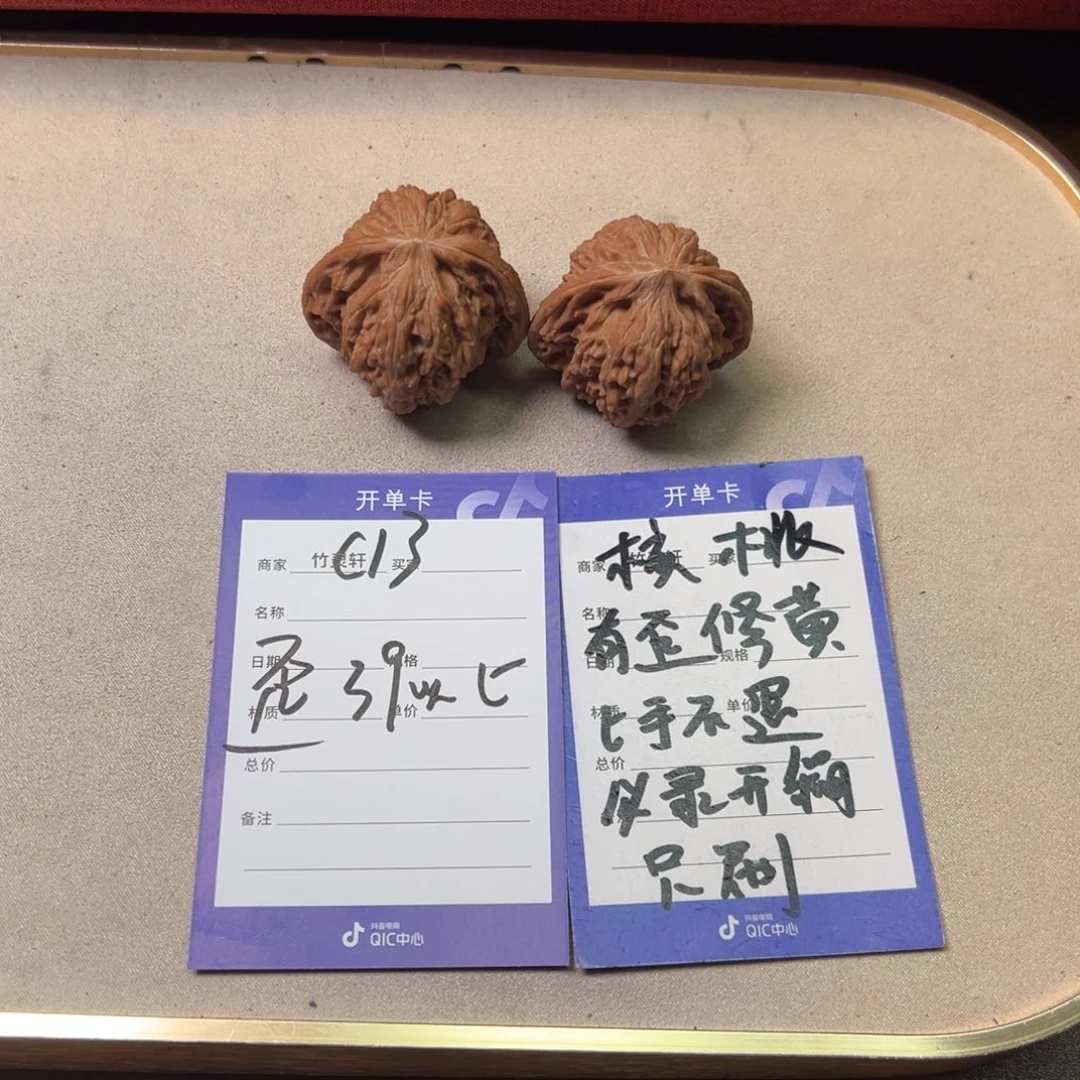 开单卡
C13
商家 竹灵轩 买家
名称
日期 规格
歪 39以上
材质 单价
总价
备注
抖音电商
QIC中心
开单卡
核桃
商家 竹灵轩 买家
名称
有歪修黄
日期 规格
上手不退
材质 单价
总价
必录开箱
只刷
抖音电商
QIC中心